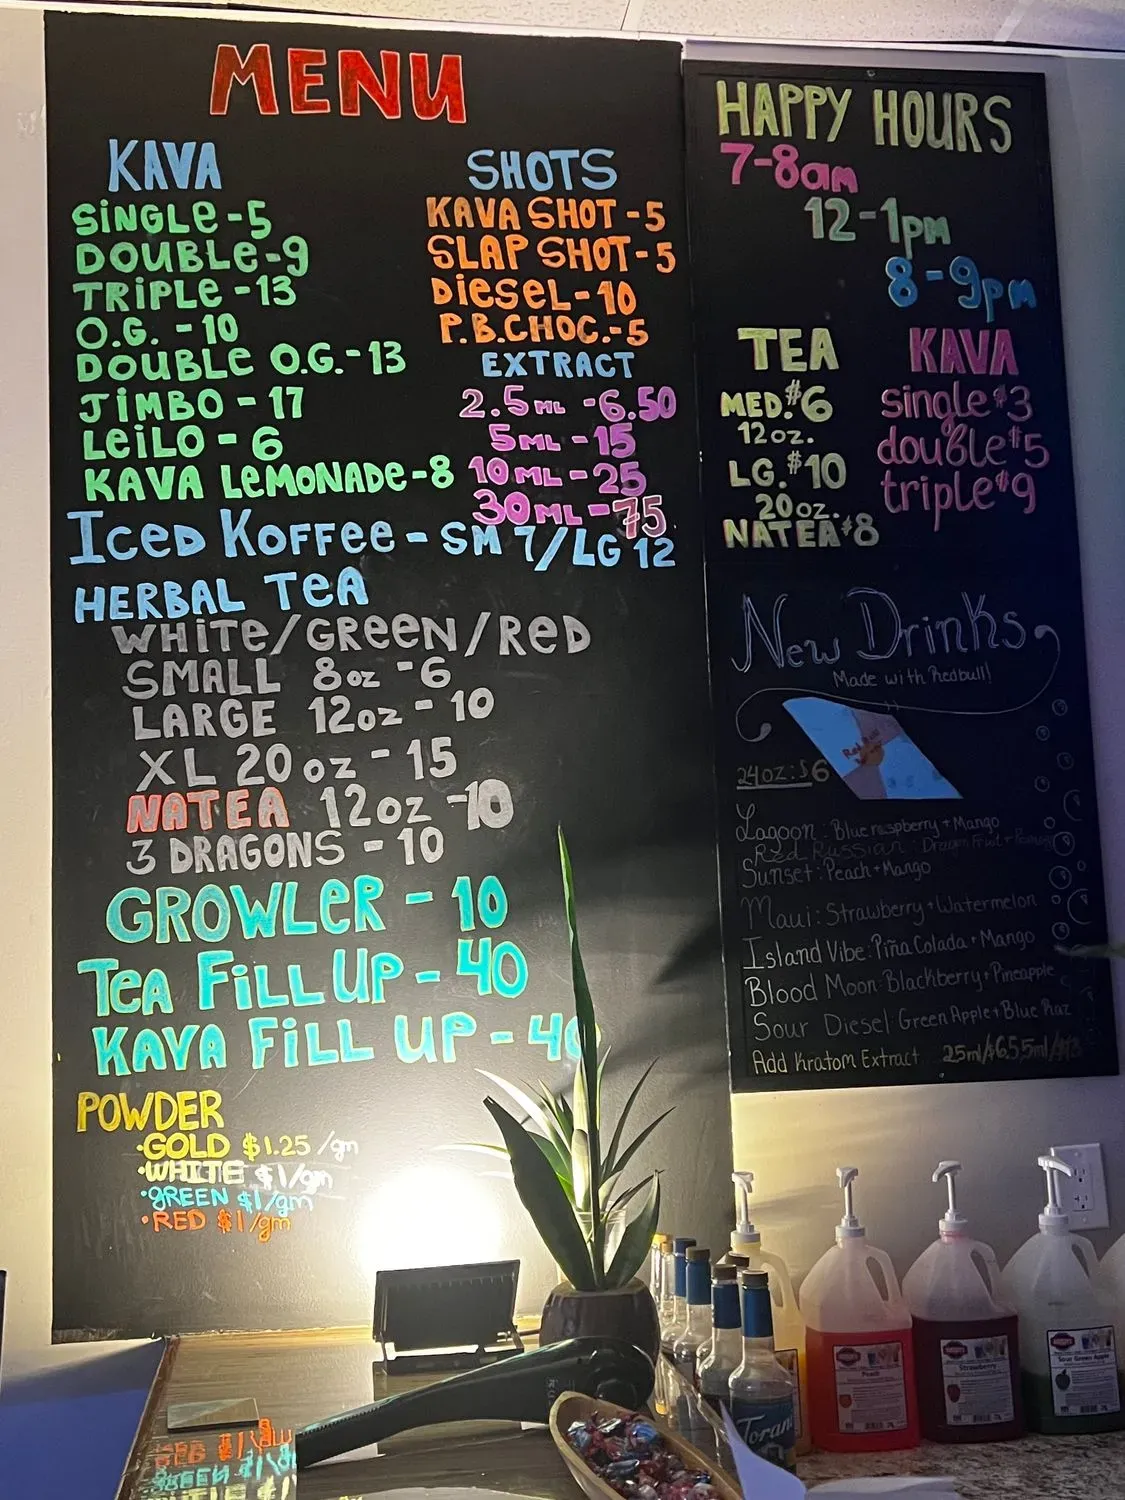 MENU
KAVA
SINGLe - 5
DOUBLe - 9
TRIPLe - 13
O.G. - 10
DOUBLe O.G. - 13
JiMBO - 17
LeiLO - 6
KAVA LeMONADe - 8
SHOTS
KAVA SHOT - 5
SLAP SHOT - 5
DieseL - 10
P.B.CHOC. - 5
EXTRACT
2.5 ML - 6.50
5ML - 15
10 ML - 25
30 ML - 75
IceD KoFFee - SM 7/LG 12
HERBAL TeA
WHiTe/GReeN/ReD
SMALL 8oz - 6
LARGE 12oz - 10
XL 20 oz - 15
NATEA 12oz - 10
3 DRAGONS - 10
GROWLeR - 10
TeA FiLL UP - 40
KAVA FiLL UP - 40
POWDER
•GOLD $1.25 /gm
•WHITE $1/gm
•gREEN $1/gm
•RED $1/gm
HAPPY HOURS
7-8am
12-1pm
8-9pm
TEA
MED. $6
12oz.
LG. $10
20oz.
NATEA $8
KAVA
single $3
double $5
triple $9
New Drinks
Made with Redbull!
24oz: $6
Lagoon: Blue raspberry + Mango
Red Russian: Dragon Fruit +
Sunset: Peach + Mango
Maui: Strawberry + Watermelon
Island Vibe: Piña Colada + Mango
Blood Moon: Blackberry + Pineapple
Sour Diesel: Green Apple + Blue Raz
Add Kratom Extract
Peach
Strawberry
Sour Green Apple
Torani